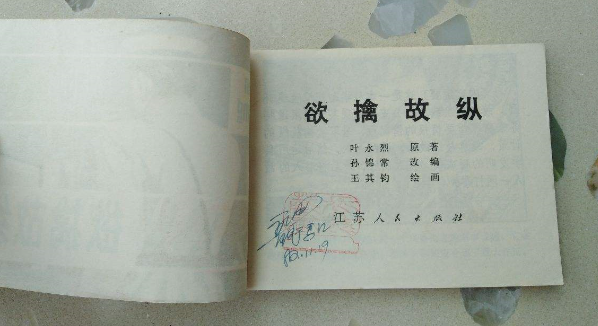 欲擒故纵
叶永烈 原著
孙锦常 改编
王其钧 绘画
江苏人民出版社